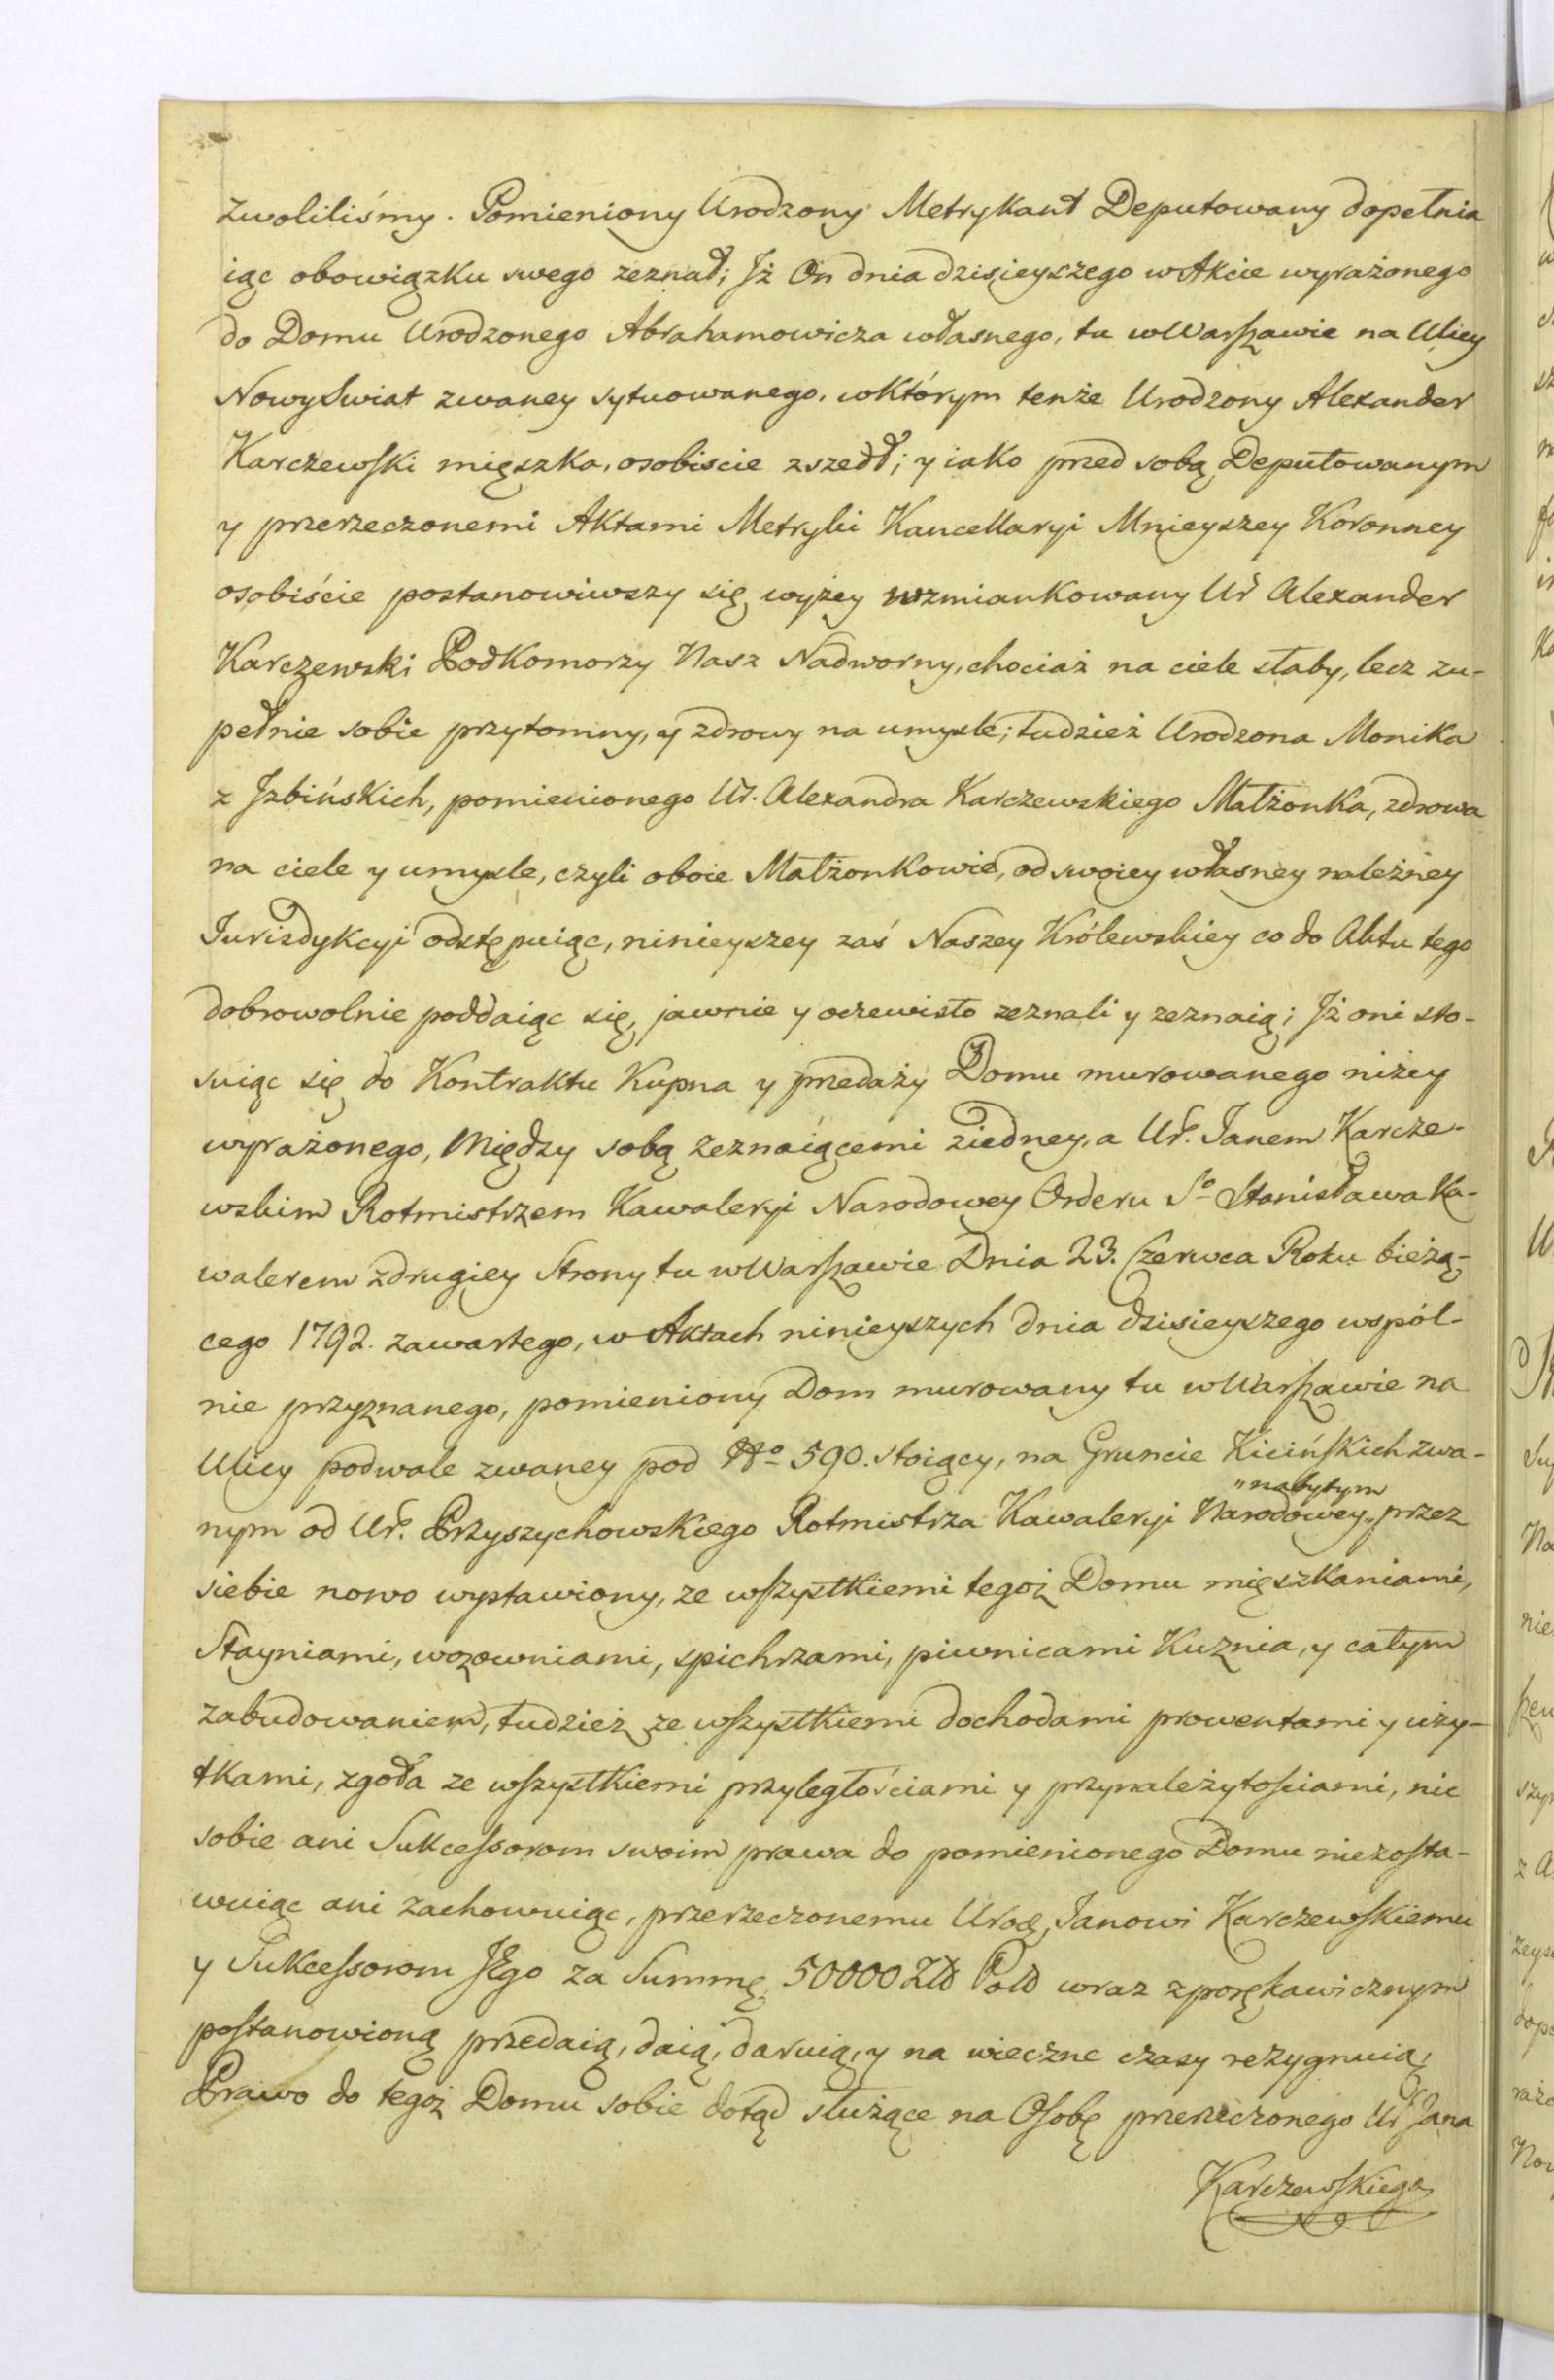 zwoliliśmy. Pomieniony Urodzony Metrykant Deputowany dopełnia
iąc obowiązku swego zeznał; Jż On dnia dzisieyszego w Akcie wyrażonego
do Domu Urodzonego Abrahamowicza własnego, tu w Warszawie na Ulicy
Nowy Swiat zwaney sytuowanego, w którym tenże Urodzony Alexander
Karczewski mięszka, osobiscie zszedł; y iako przed sobą Deputowanym
y przerzeczonemi Aktami Metryki Kancellaryi Mnieyszey Koronney
osobiście postanowiwszy się wyżey wzmiankowany Ur Alexander
Karczewski Podkomorzy Nasz Nadworny, chociaż na ciele słaby, lecz zu-
pełnie sobie przytomny, y zdrowy na umysle; tudzież Urodzona Monika
z Jzbińskich, pomienionego Ur. Alexandra Karczewskiego Małżonka, zdrowa
na ciele y umysle, czyli oboie Małżonkowie, od swoiey własney należney
Jurisdykcyi odstępuiąc, ninieyszey zaś Naszey Królewskiey co do Aktu tego
dobrowolnie poddaiąc się, jawnie y oczewisto zeznali y zeznaią; Jż oni sto-
suiąc się do Kontraktu Kupna y przedaży Domu murowanego niżey
wyrażonego, Między sobą zeznaiącemi ziedney, a Ur. Janem Karcze-
wskim Rotmistrzem Kawaleryi Narodowey Orderu So Stanisława Ka-
walerem zdrugiey Strony tu w Warszawie Dnia 23. Czerwca Roku bieżą-
cego 1792. zawartego, w Aktach ninieyszych dnia dzisieyszego wspól-
nie przyznanego, pomieniony Dom murowany tu w Warszawie na
Ulicy podwale zwaney pod No 590. stoiący, na Gruncie Kicińskich zwa-
"nabytym
nym od Ur. Przyszychowskiego Rotmistrza Kawaleryi Narodowey" przez
siebie nowo wystawiony, ze wszystkiemi tegoż Domu mięszkaniami,
Stayniami, wozowniami, spichrzami, piwnicami Kuznia, y całym
zabudowaniem, tudzież ze wszystkiemi dochodami prowentami y uży-
tkami, zgoła ze wszystkiemi przyległościami y przynależytościami, nic
sobie ani Sukcessorom swoim prawa do pomienionego Domu niezosta-
wuiąc ani zachowuiąc, przerzeczonemu Urodz. Janowi Karczewskiemu
y Sukcessorom Jego za Summę 50000 Zło Pols wraz z porękawicznym
postanowioną przedaią, daią, daruią, y na wieczne czasy rezygnuią,
Prawo do tegoż Domu sobie dotąd służące na Osobę przerzeczonego Ur Jana
Karczewskiego